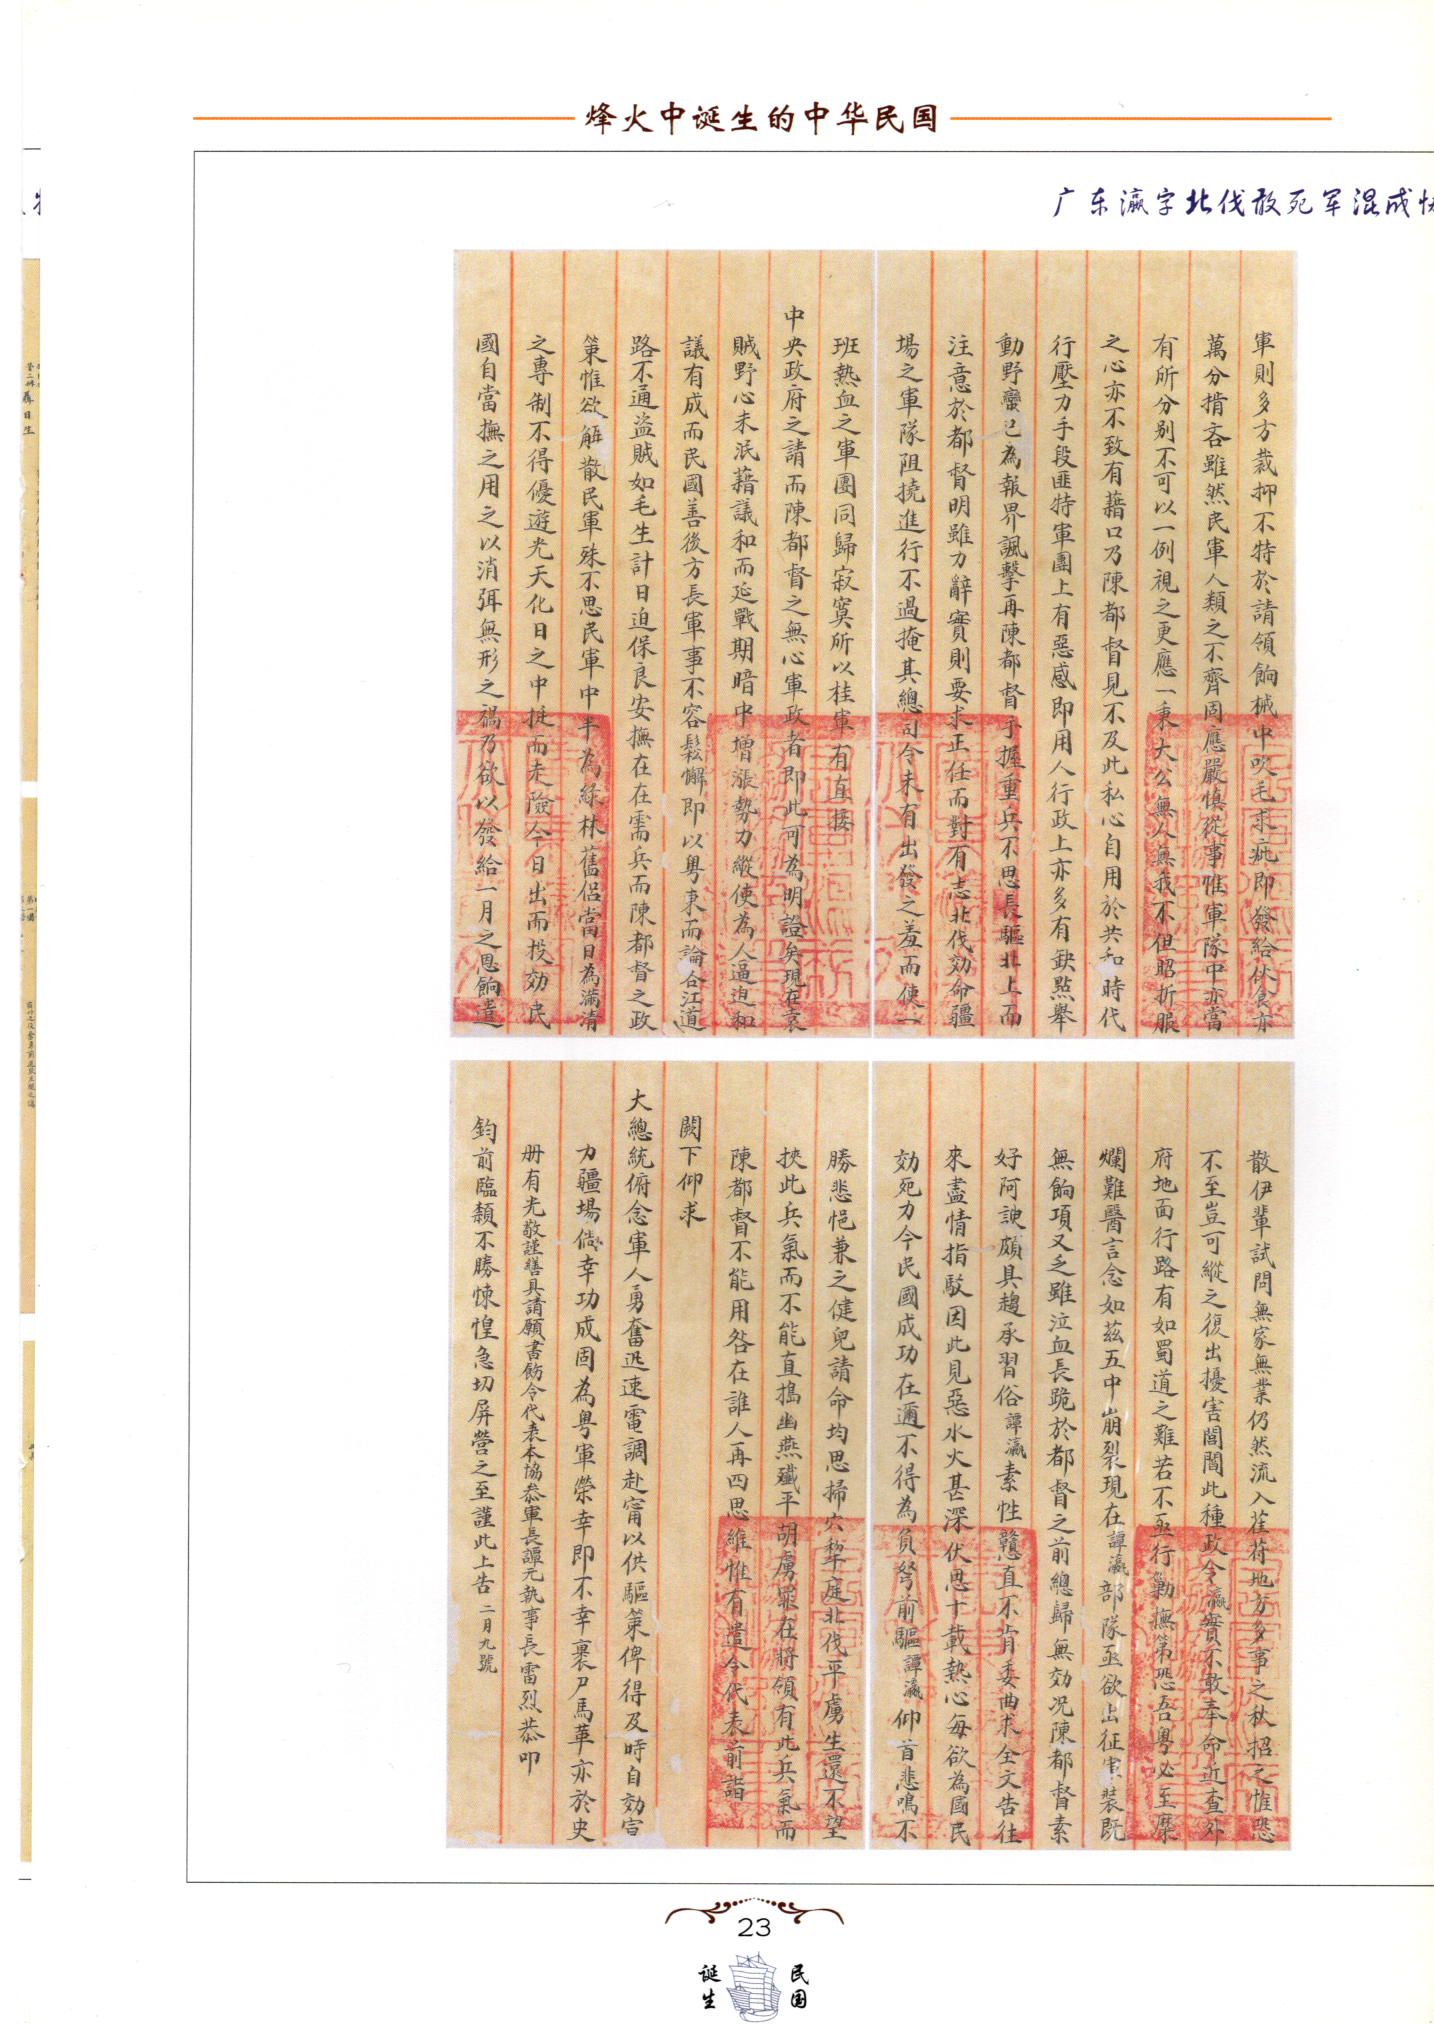 烽火中诞生的中华民国
广东瀛字北伐敢死军混成协
軍則多方裁抑不特於請領餉械中吹毛求疵即發給伙食亦
萬分揹吝雖然民軍人類之不齊固應嚴慎從事惟軍隊中亦當
有所分别不可以一例視之更應一秉大公無人無我不但昭折服
之心亦不致有藉口乃陳都督見不及此私心自用於共和時代
行壓力手段匪特軍團上有惡感即用人行政上亦多有缺點舉
動野蠻已為報界諷擊再陳都督手握重兵不思長驅北上而
注意於都督明雖力辭實則要求正任而對有志北伐効命疆
場之軍隊阻撓進行不過掩其總司令未有出發之羞而使一
班熱血之軍團同歸寂寞所以桂軍有直接
中央政府之請而陳都督之無心軍政者即此可為明證矣現在袁
賊野心未泯藉議和而延戰期暗中增漲勢力縱使為人逼迫和
議有成而民國善後方長軍事不容鬆懈即以粤東而論合江道
路不通盜賊如毛生計日迫保良安撫在在需兵而陳都督之政
策惟欲解散民軍殊不思民軍中半為綠林舊侣當日為滿清
之專制不得優遊光天化日之中挺而走險今日出而投効民
國自當撫之用之以消弭無形之禍乃欲以發給一月之恩餉遣
散伊輩試問無家無業仍然流入萑苻地方多事之秋招之惟恐
不至豈可縱之復出擾害閭閻此種政令瀛實不敢奉命近查外
府地面行路有如蜀道之難若不亟行勦撫第恐吾粤必至糜
爛難醫言念如茲五中崩裂現在譚瀛部隊亟欲出征軍裝既
無餉項又乏雖泣血長跪於都督之前總歸無効况陳都督素
好阿諛頗具趨承習俗譚瀛素性戇直不肯委曲求全文告往
來盡情指駁因此見惡水火甚深伏思十載熱心每欲為國民
効死力今民國成功在邇不得為負弩前驅譚瀛仰首悲鳴不
勝悲悒兼之健兒請命均思掃穴犂庭北伐平虜生還不望
挾此兵氣而不能直搗幽燕殲平胡虜罪在將領有此兵氣而
陳都督不能用咎在誰人再四思維惟有遣令代表前詣
闕下仰求
大總統俯念軍人勇奮迅速電調赴甯以供驅策俾得及時自効宣
力疆場倘幸功成固為粤軍榮幸即不幸裹尸馬革亦於史
册有光敬謹繕具請願書飭令代表本協叅軍長譚元執事長雷烈恭叩
鈞前臨頴不勝悚惶急切屏營之至謹此上告 二月九號
23
诞生
民国